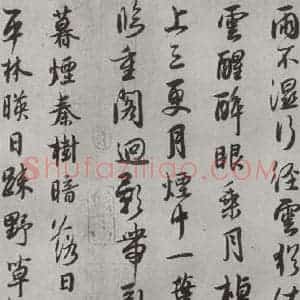 雨不湿行径雲猶
雲醒醉眼乘月棹
上三更月煙中一葉
重閣迴影帶
暮煙秦樹暗落日
平林暎日踈野草
Shufaziliao.com